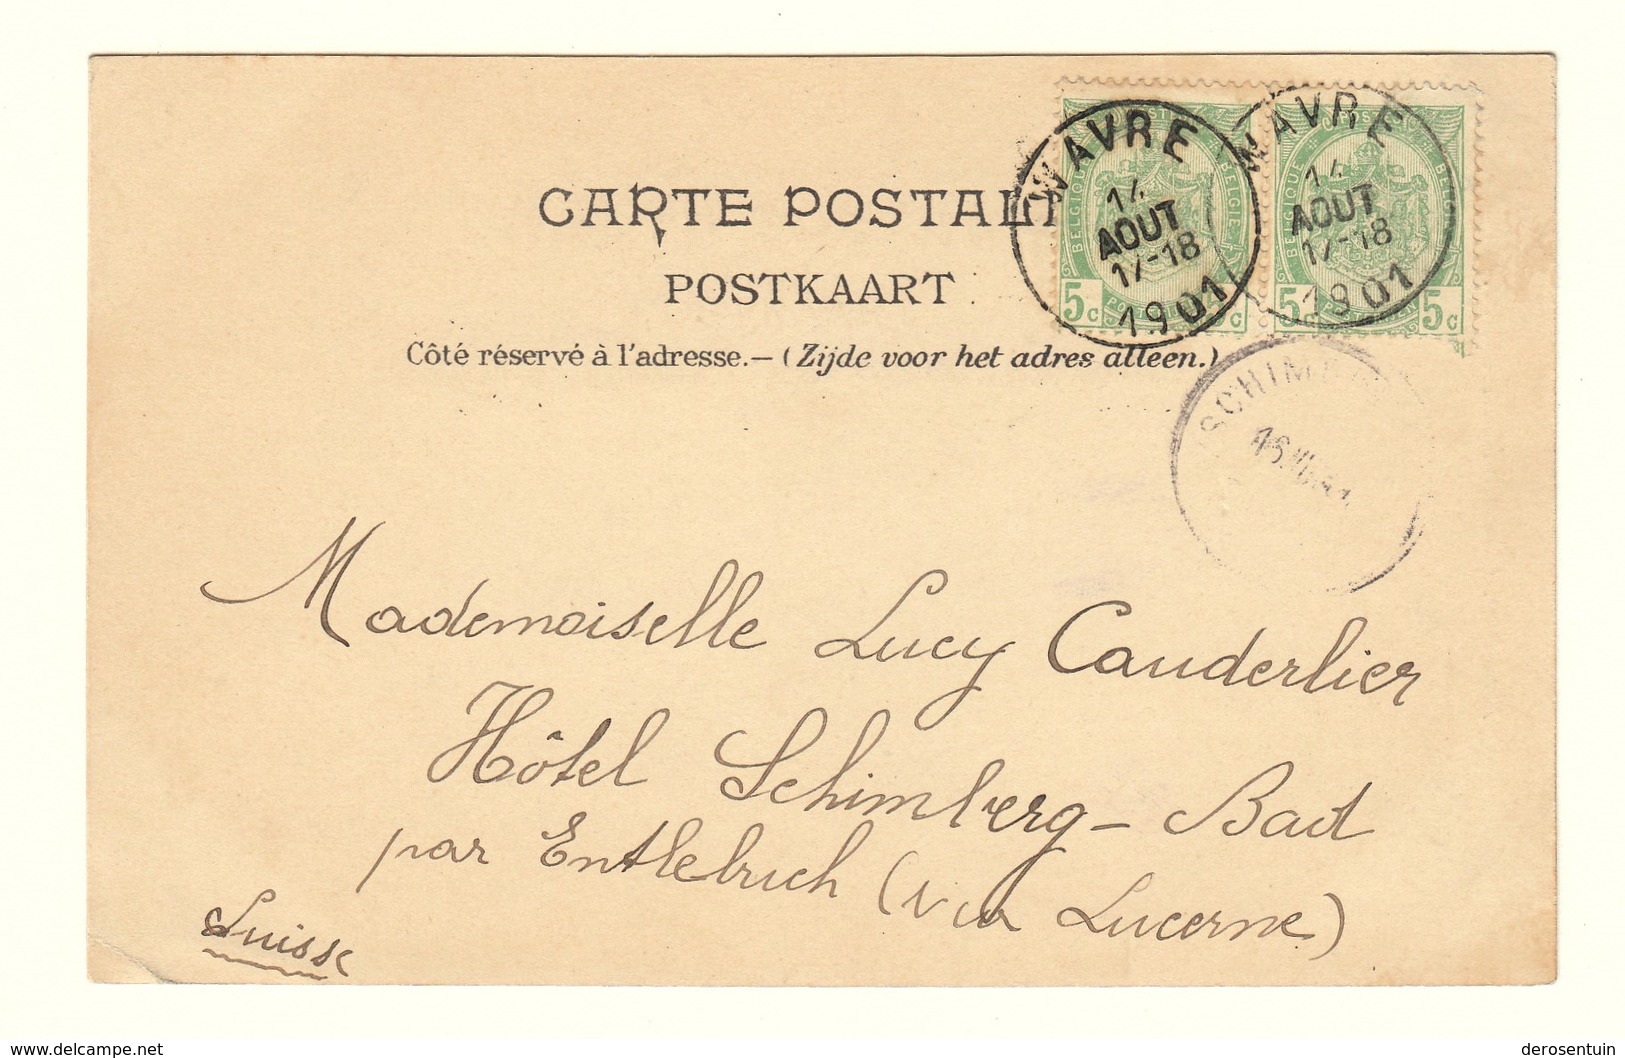 CARTE POSTAL
POSTKAART
Côté réservé à l'adresse.— (Zijde voor het adres alleen.)
WAVRE
14
AOUT
17-18
1901
WAVRE
14
AOUT
17-18
1901
BELGIQUE
5c
BELGIQUE BELGIË
5c 5c
SCHIM
Mademoiselle Lucy Cauderlier
Hôtel Schimberg-Bad
par Entlebuch (via Lucerne)
Suisse
www.delcampe.net
derosentuin